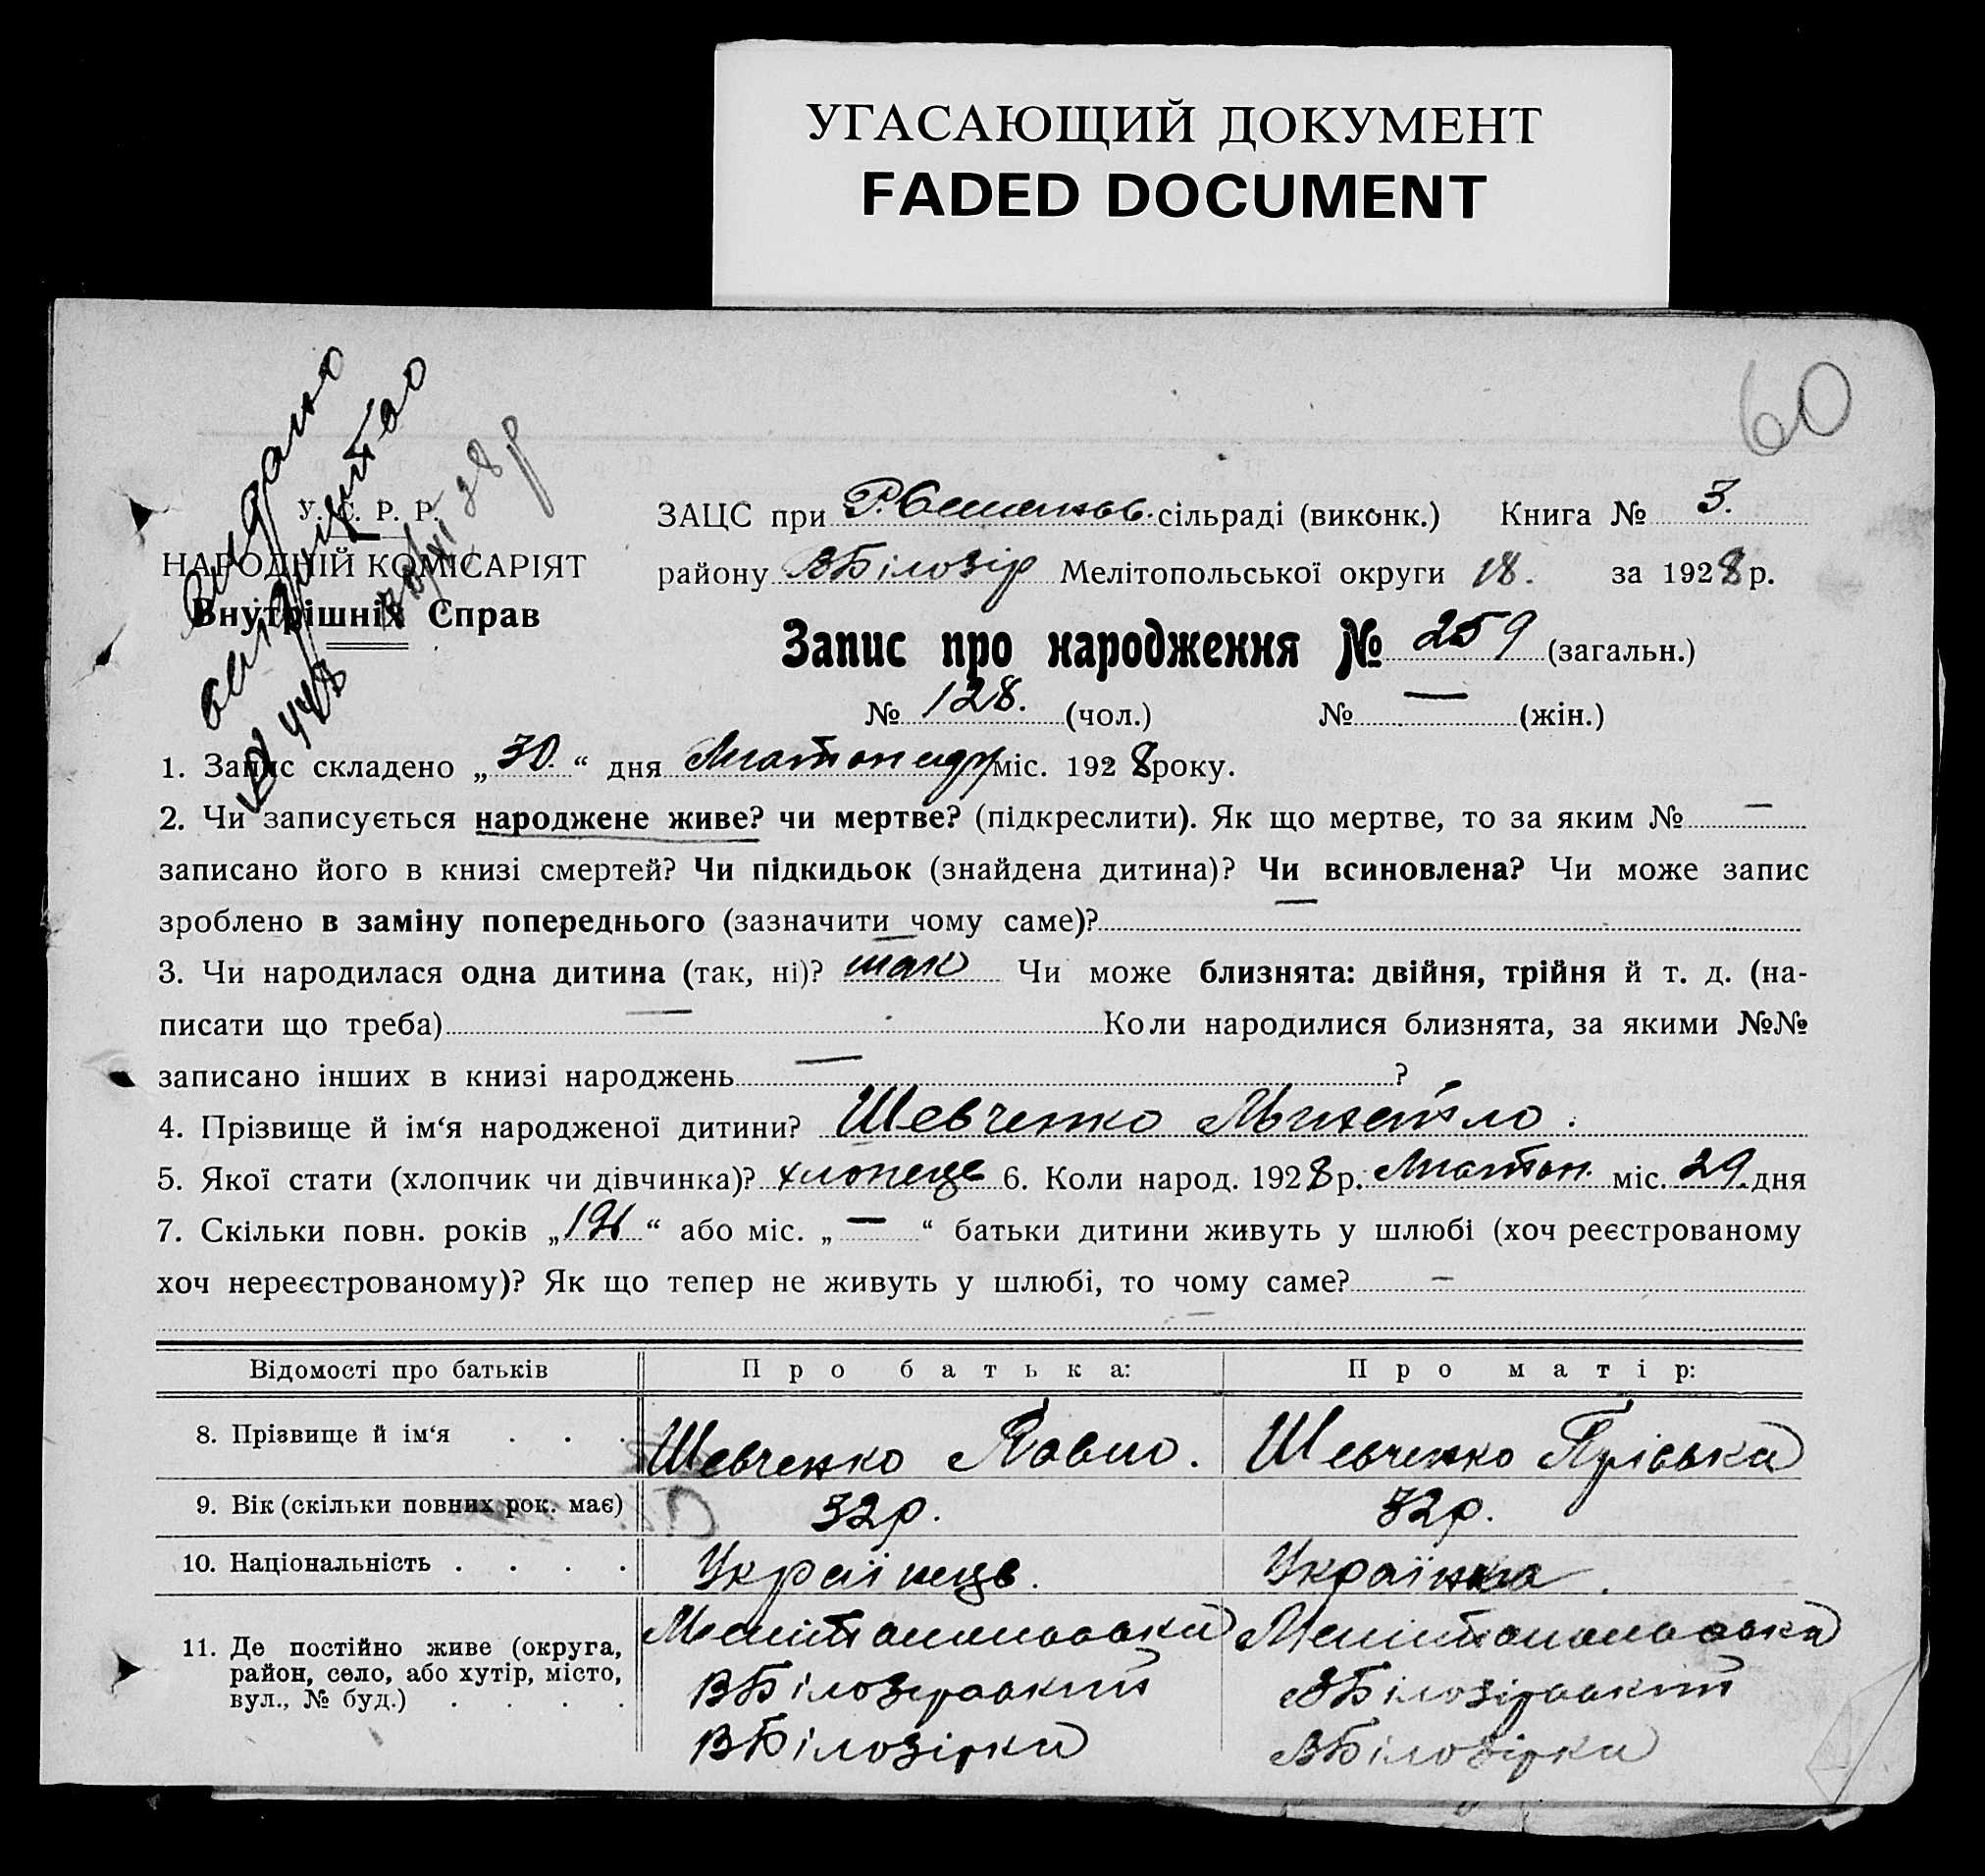 УГАСАЮЩИЙ ДОКУМЕНТ
FADED DOCUMENT
60
Видано
У. С. Р. Р.
НАРОДНІЙ КОМІСАРІЯТ
Внутрішніх Справ
ЗАЦС при сільраді (виконк.) Книга № 3.
району ВБілозір Мелітопольської округи 18. за 1928 р.
Запис про народження № 259 (загальн.)
№ 128. (чол.) № — (жін.)
1. Запис складено „30.“ дня міс. 1928 року.
2. Чи записується народжене живе? чи мертве? (підкреслити). Як що мертве, то за яким № —
записано його в книзі смертей? Чи підкидьок (знайдена дитина)? Чи всиновлена? Чи може запис
зроблено в заміну попереднього (зазначити чому саме)? —
3. Чи народилася одна дитина (так, ні)? так Чи може близнята: двійня, трійня й т. д. (на-
писати що треба) — Коли народилися близнята, за якими №№
записано інших в книзі народжень — ?
4. Прізвище й ім‘я народженої дитини? Шевченко Михайло.
5. Якої стати (хлопчик чи дівчинка)? хлопець 6. Коли народ. 1928 р. Листоп. міс. 29 дня
7. Скільки повн. років „ “ або міс. „—“ батьки дитини живуть у шлюбі (хоч реєстрованому
хоч нереєстрованому)? Як що тепер не живуть у шлюбі, то чому саме? —
Відомості про батьків Про батька: Про матір:
8. Прізвище й ім‘я . . . Шевченко Павло. Шевченко Пріська
9. Вік (скільки повних рок. має) 32р. 32р.
10. Національність . . . . Українець. Українка.
11. Де постійно живе (округа, Мелітопольська Мелітопольська
район, село, або хутір, місто, ВБілозірський ВБілозірський
вул., № буд.) . . . . ВБілозірка ВБілозірка